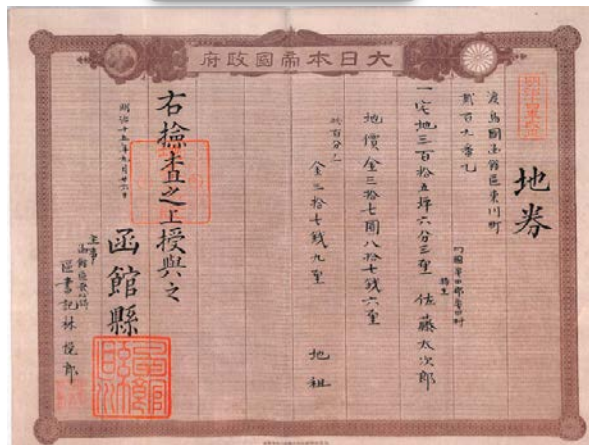 大日本帝國政府
地券
渡島國函館區東川町
貳百九番地
一宅地三百拾五坪六分三厘
持主 佐藤太次郎
地價金三拾七圓八拾七錢六厘
此百分ノ
金三拾七錢九厘 地租
右檢查之上授與之
明治十五年九月廿六日
函館縣
主事
區書記林悦郎